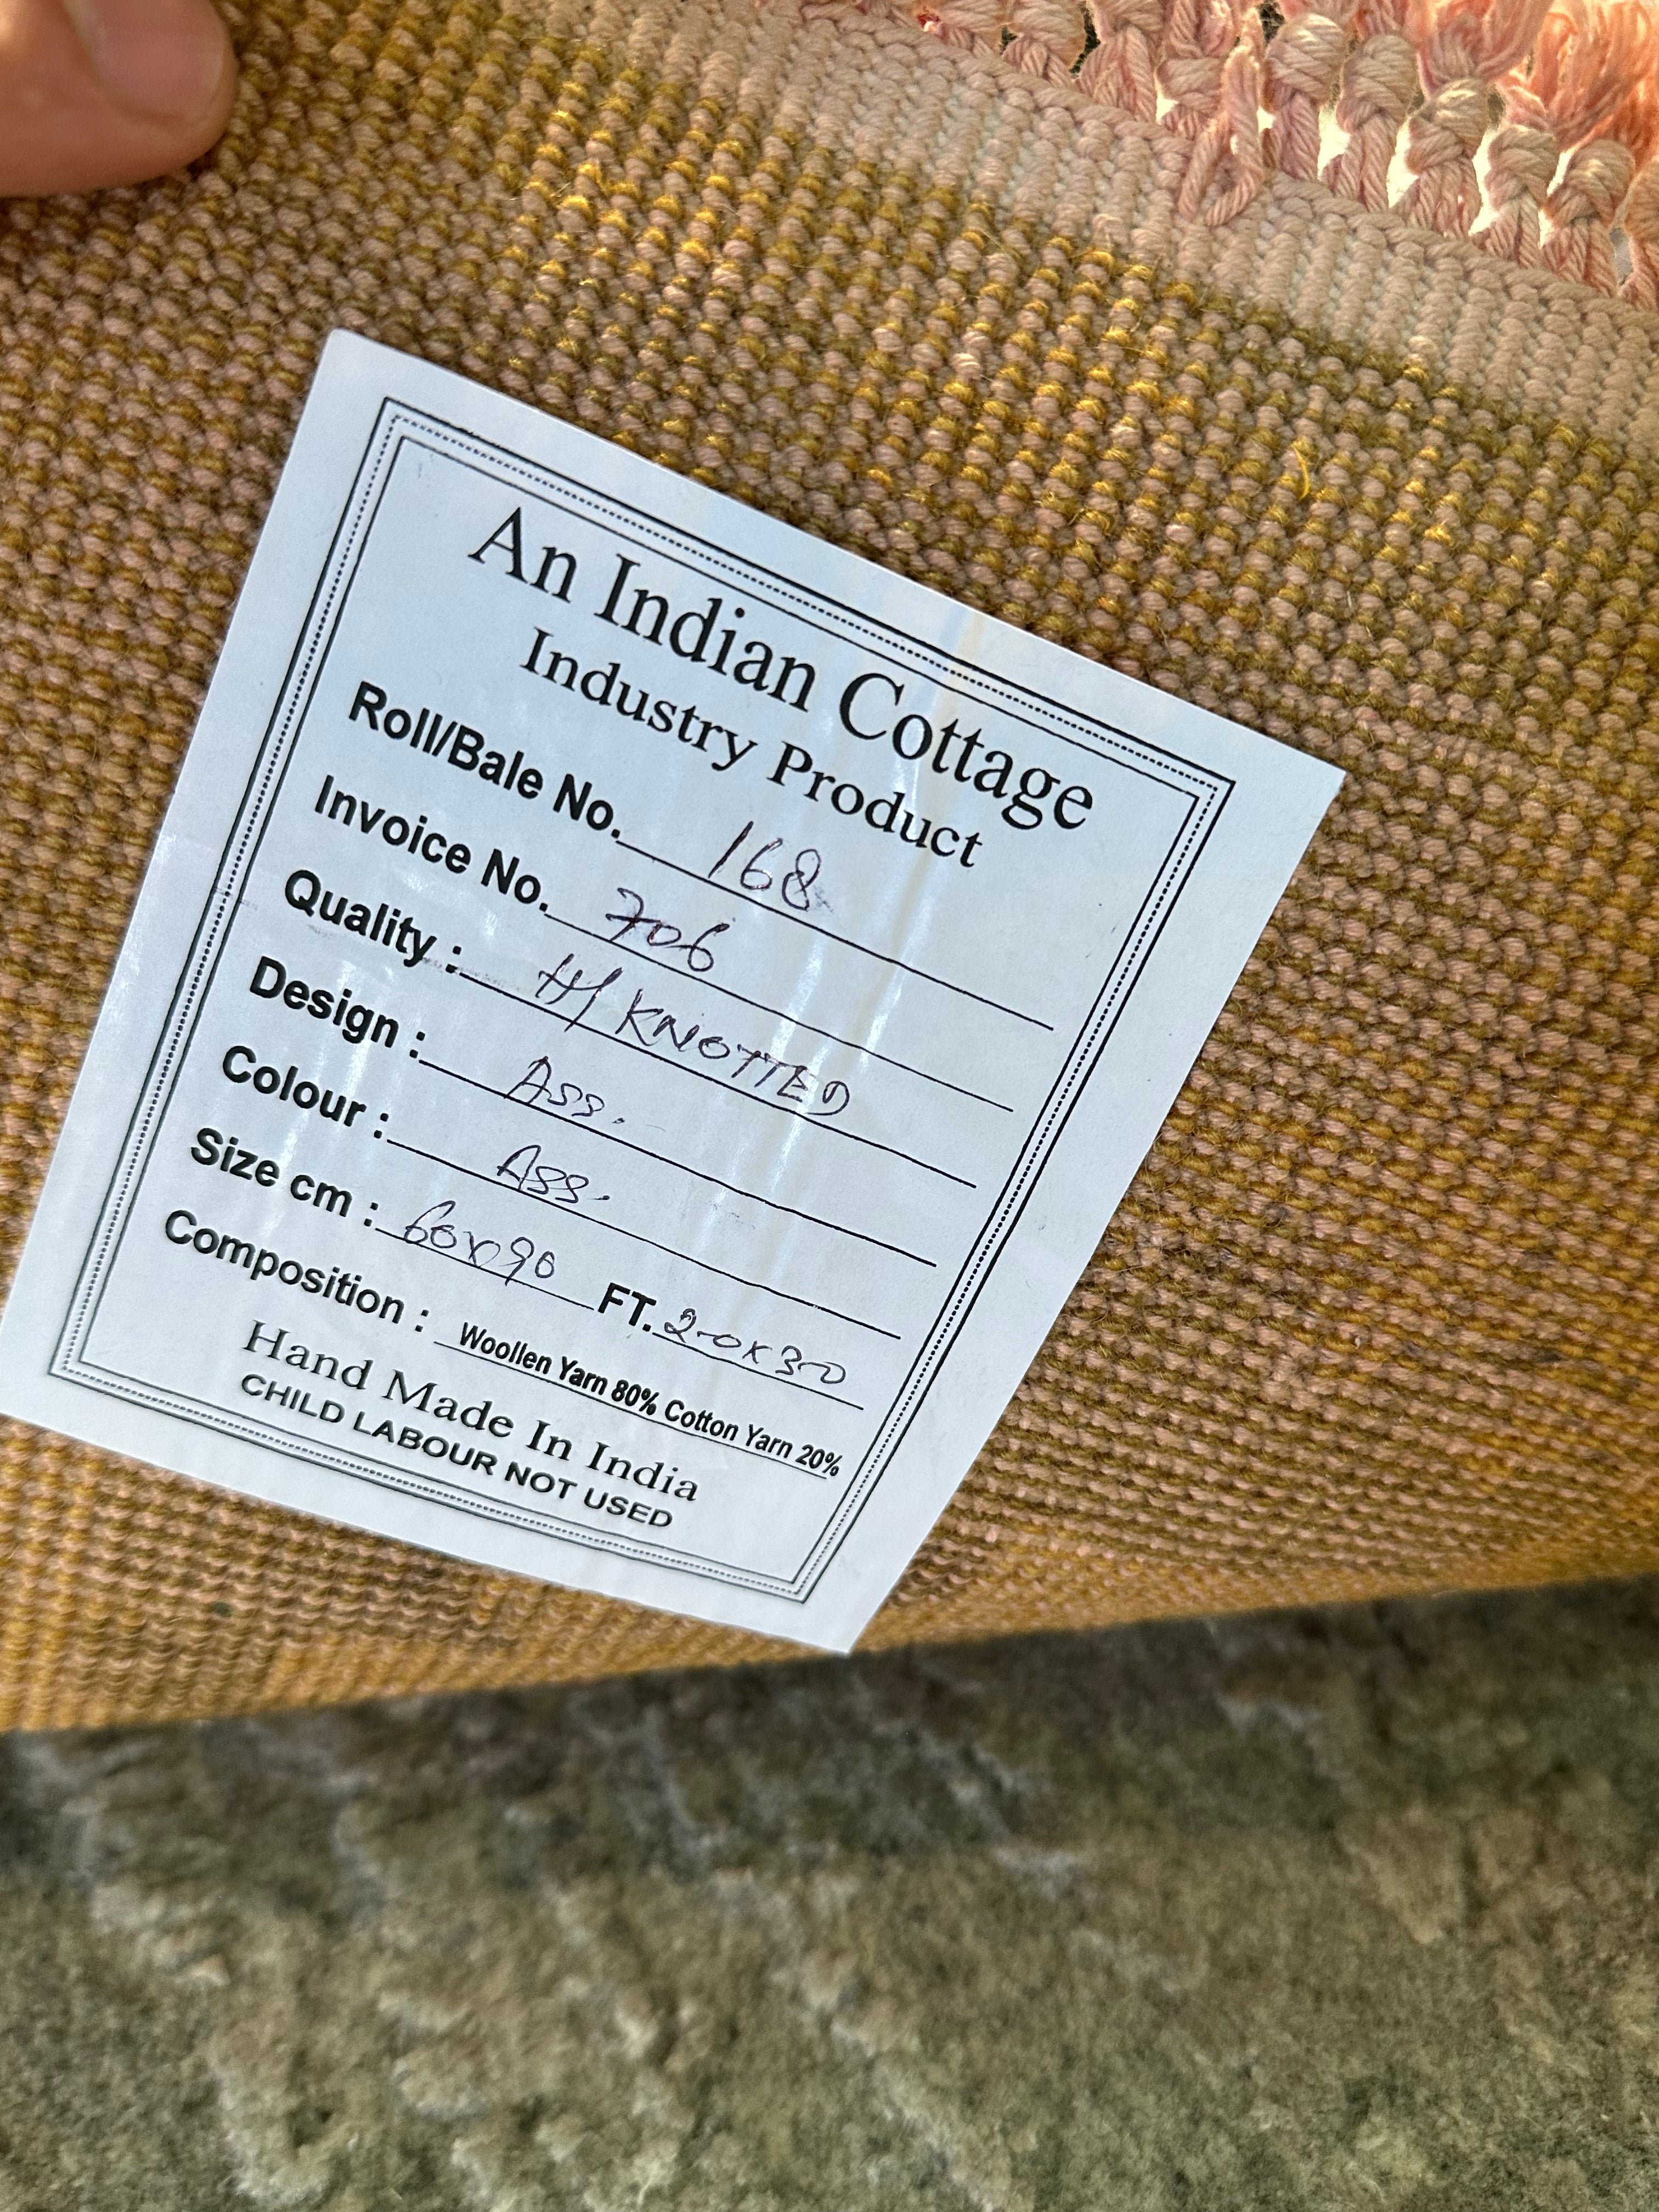 An Indian Cottage
Industry Product
Roll/Bale No. 168
Invoice No. 706
Quality : H/KNOTTED
Design : Ass.
Colour : Ass.
Size cm : 60x90 FT. 2-0x3-0
Composition : Woollen Yarn 80% Cotton Yarn 20%
Hand Made In India
CHILD LABOUR NOT USED